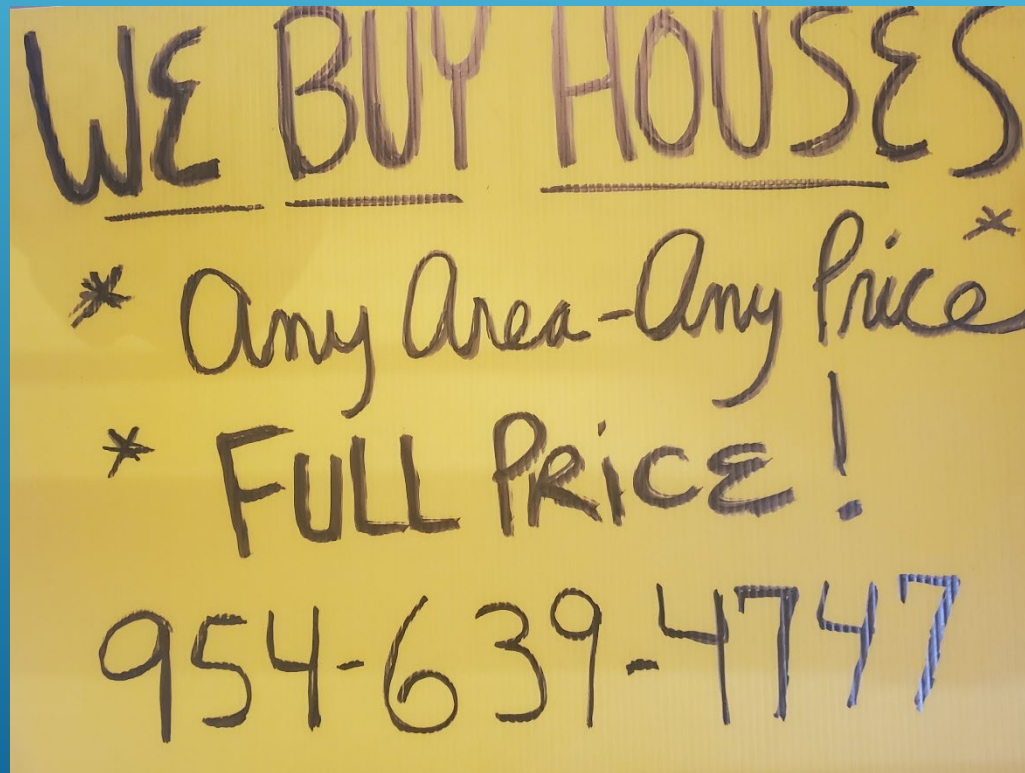 WE BUY HOUSES
* Any Area-Any Price *
* FULL PRiCE!
954-639-4747